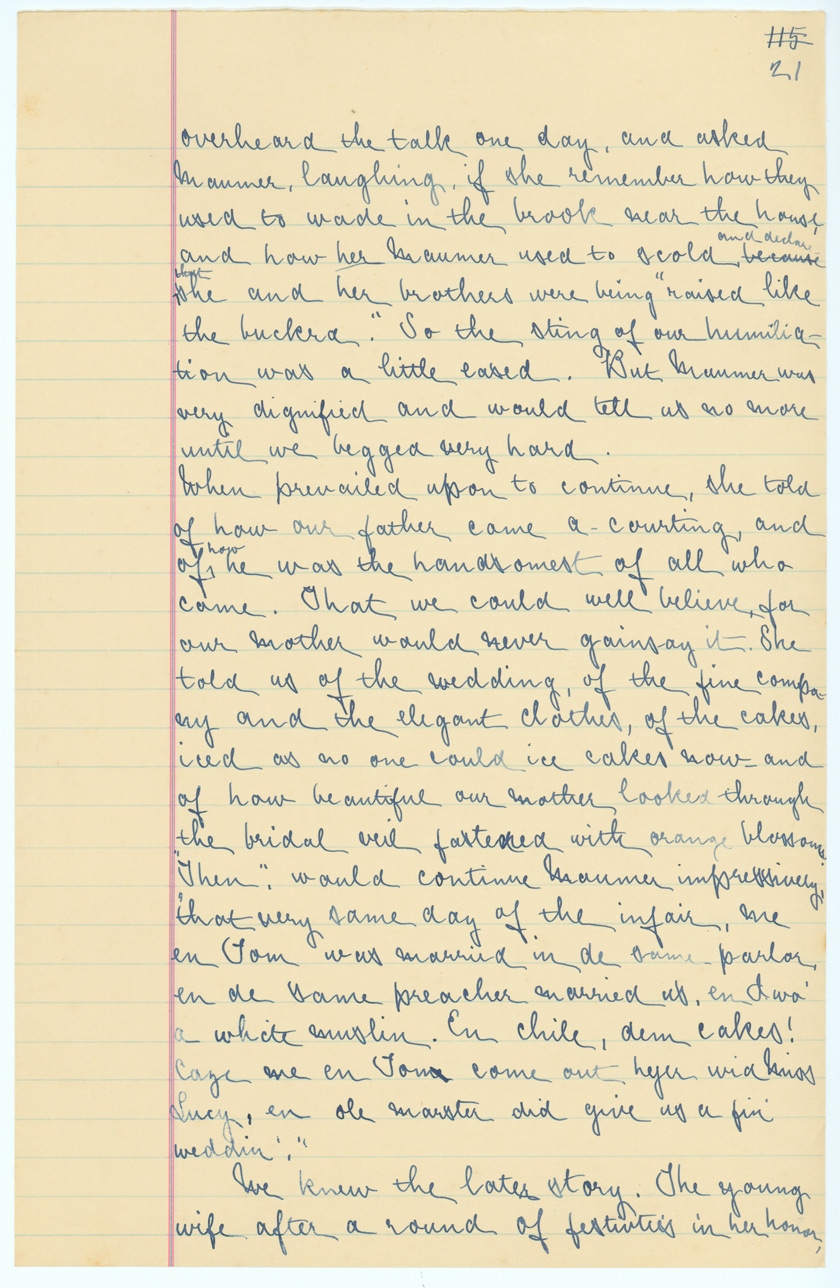 115
21
overheard the talk one day, and asked
Maumer, laughing, if she remember how they
used to wade in the brook near the house,
and declar-
and how her Maumer used to scold, because
that
she and her brothers were being "raised like
the buckra." So the sting of our humilia-
tion was a little eased. But Maumer was
very dignified and would tell us no more
until we begged very hard.
When prevailed upon to continue, she told
of how our father came a-courting, and
how
of he was the handsomest of all who
came. That we could well believe, for
our mother would never gainsay it. She
told us of the wedding, of the fine compa-
ny and the elegant clothes, of the cakes,
iced as no one could ice cakes now- and
of how beautiful our mother looked through
the bridal veil fastened with orange blossoms.
"Then", would continue Maumer impressively,
"that very same day of the infair, me
en Tom was married in de same parlor,
en de same preacher married us, en I wo'
a white muslin. En chile, dem cakes!
Caze me en Tom come out heyer wid Miss
Lucy, en ole marster did give us a fin'
weddin'."
We knew the later story. The young
wife after a round of festivities in her honor,